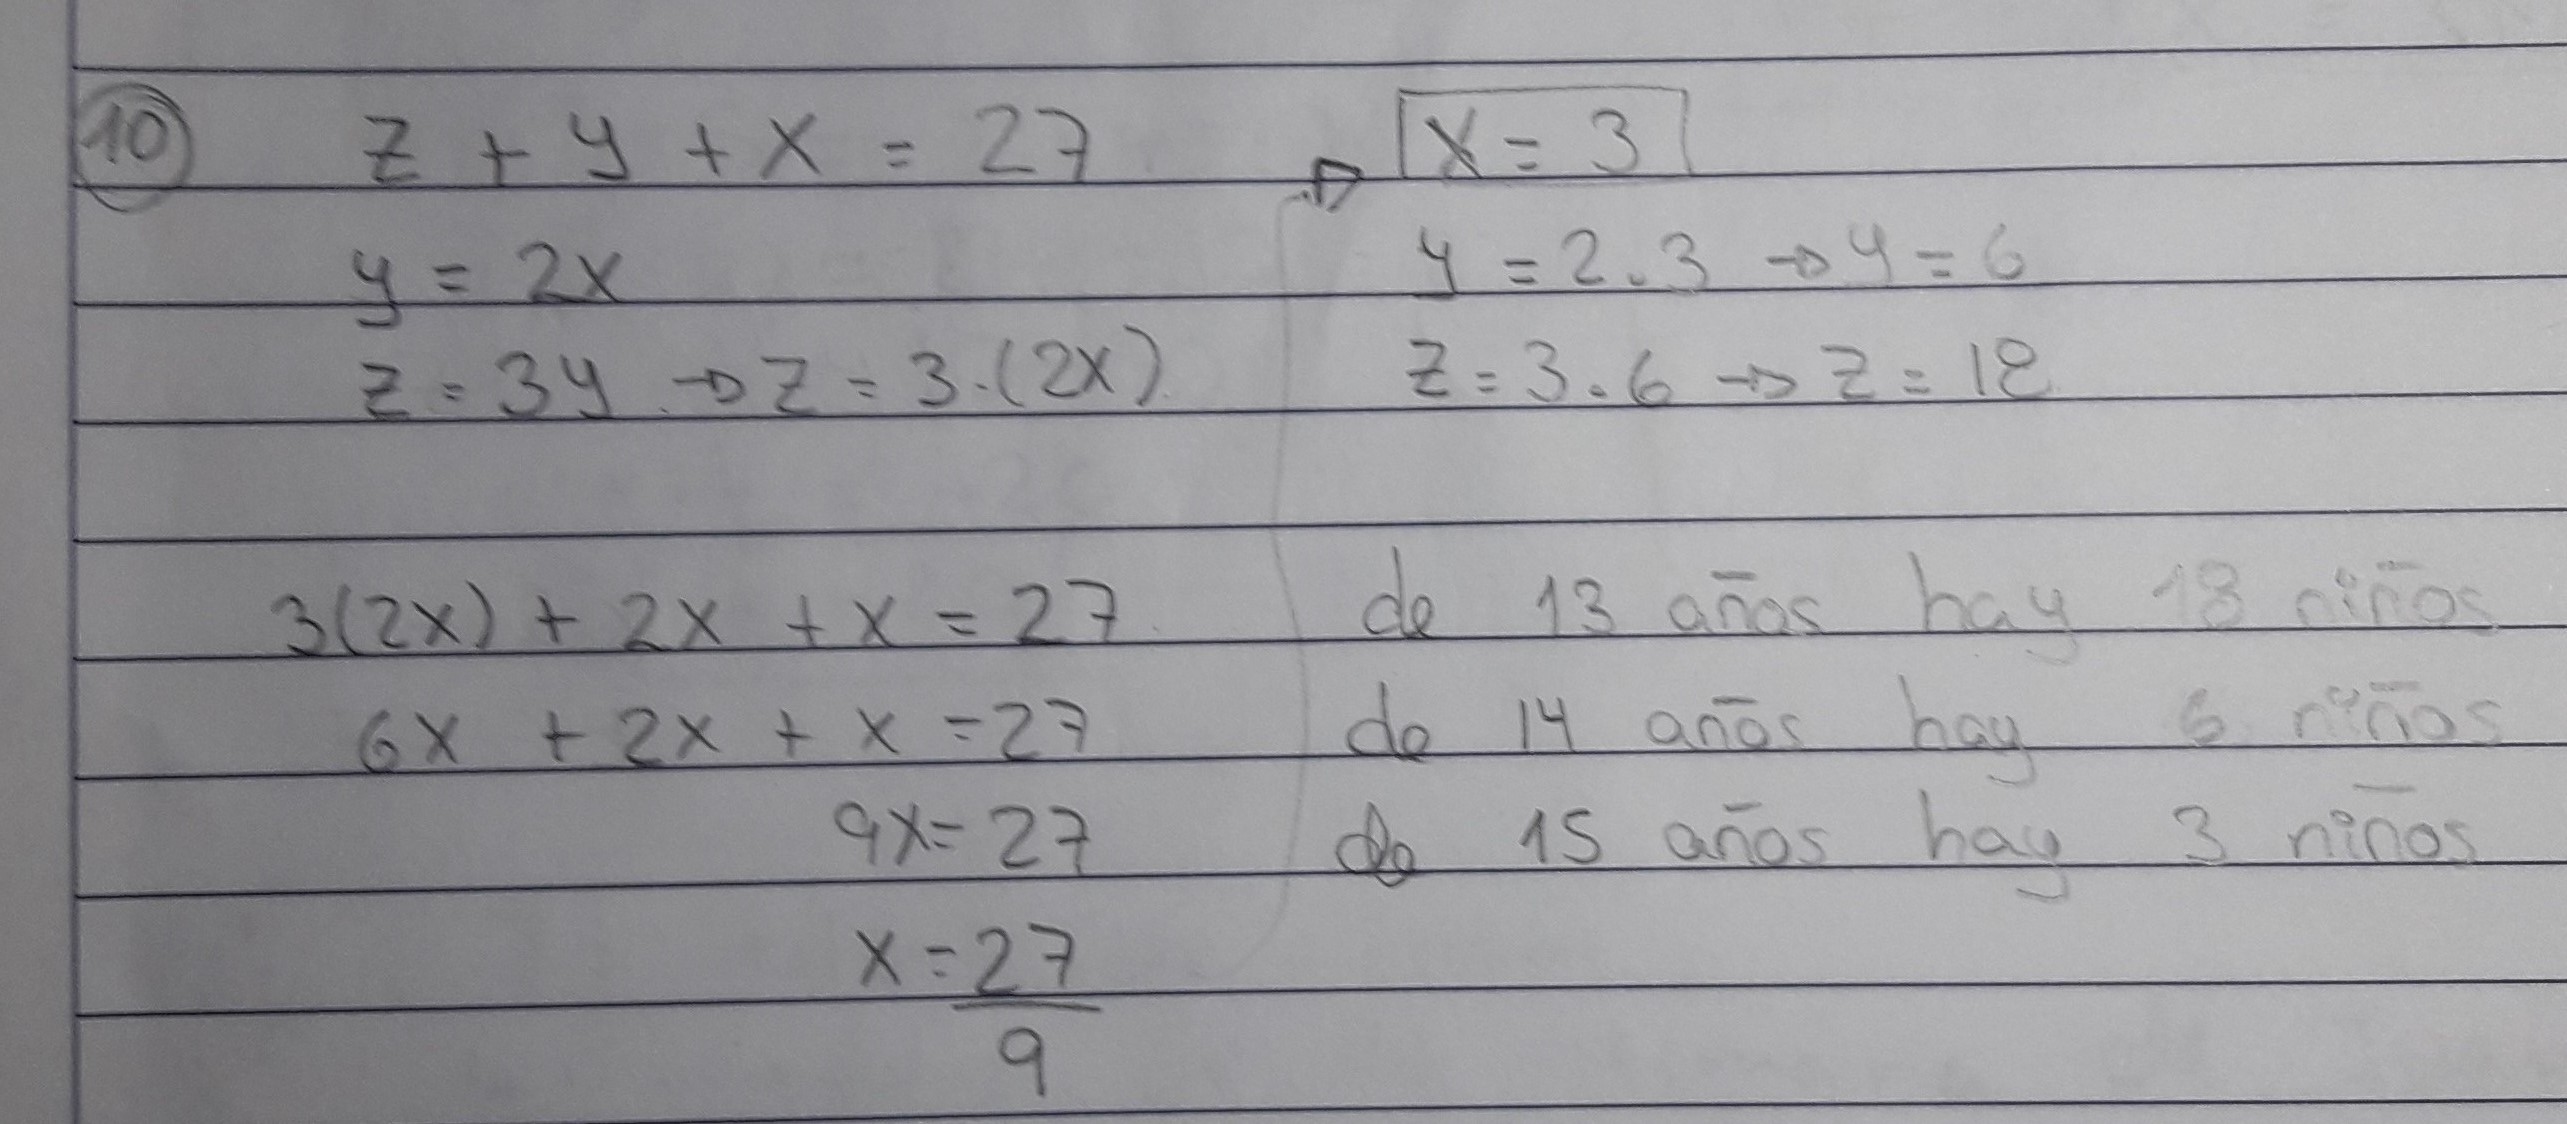 10
z + y + x = 27
y = 2x
z = 3y → z = 3·(2x)
3(2x) + 2x + x = 27
6x + 2x + x = 27
9x = 27
x = 27
9
x = 3
y = 2.3 → y = 6
z = 3.6 → z = 18
de 13 años hay 18 niños
de 14 años hay 6 niños
de 15 años hay 3 niños